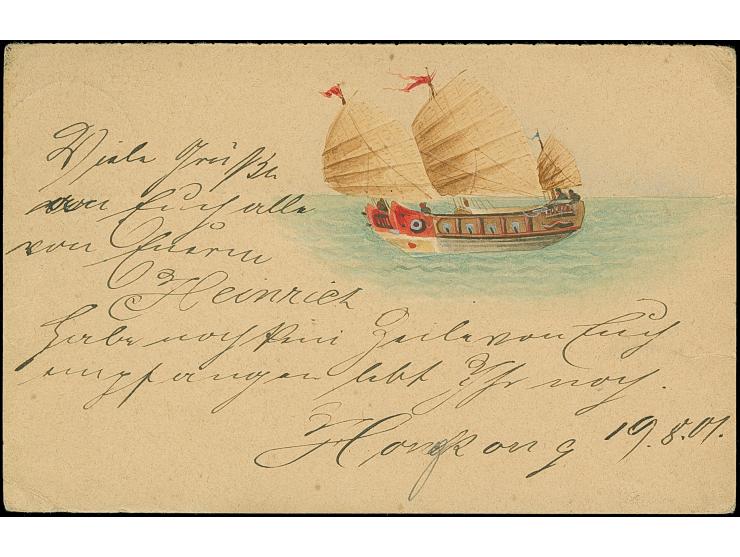 Viele Grüße
an Euch alle
von Euerm
Heinrich
Habe noch kein Zeile von Euch
empfangen lebt Ihr noch.
Honkong 19.8.01.